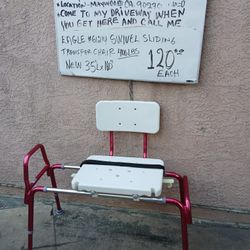 •LOCATION-MAYWOOD CA 90270
•COME TO MY DRIVEWAY WHEN
YOU GET HERE AND CALL ME
EAGLE SWIVEL SLIDING
TRANSFER CHAIR 400LBS
NEW 120
EACH